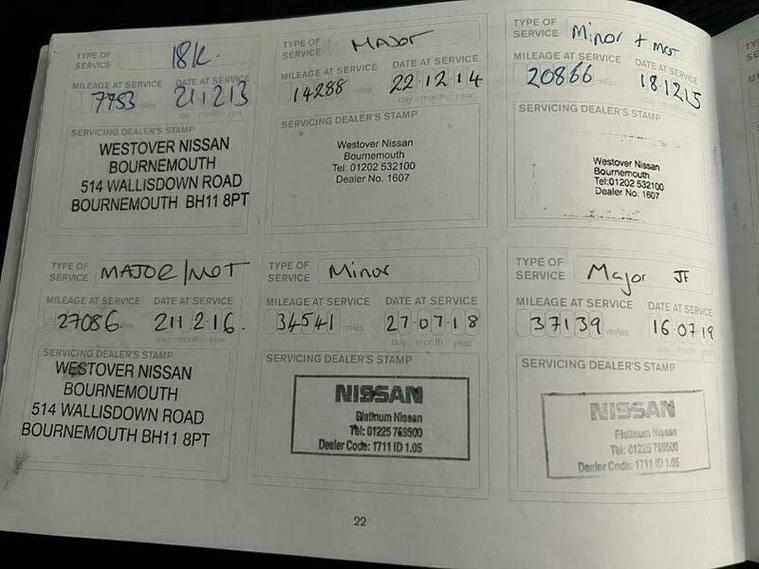 TYPE OF SERVICE 18K.
MILEAGE AT SERVICE DATE AT SERVICE
7753 miles 21 12 13
day month year
SERVICING DEALER'S STAMP
WESTOVER NISSAN
BOURNEMOUTH
514 WALLISDOWN ROAD
BOURNEMOUTH BH11 8PT
TYPE OF SERVICE MAJOR
MILEAGE AT SERVICE DATE AT SERVICE
14288 miles 22 12 14
day month year
SERVICING DEALER'S STAMP
Westover Nissan
Bournemouth
Tel: 01202 532100
Dealer No. 1607
TYPE OF SERVICE Minor + MOT
MILEAGE AT SERVICE DATE AT SERVICE
20866 miles 18 12 15
day month year
SERVICING DEALER'S STAMP
Westover Nissan
Bournemouth
Tel:01202 532100
Dealer No. 1607
TYPE OF SERVICE MAJOR/MOT
MILEAGE AT SERVICE DATE AT SERVICE
27086 miles 21 12 16.
day month year
SERVICING DEALER'S STAMP
WESTOVER NISSAN
BOURNEMOUTH
514 WALLISDOWN ROAD
BOURNEMOUTH BH11 8PT
TYPE OF SERVICE Minor
MILEAGE AT SERVICE DATE AT SERVICE
34541 miles 27 07 18
day month year
SERVICING DEALER'S STAMP
NISSAN
Platinum Nissan
Tel: 01225 769500
Dealer Code: 1711 ID 1.05
TYPE OF SERVICE Major JF
MILEAGE AT SERVICE DATE AT SERVICE
37139 miles 16 07 19
day month year
SERVICING DEALER'S STAMP
NISSAN
Platinum Nissan
Tel: 01225 769500
Dealer Code: 1711 ID 1.05
22